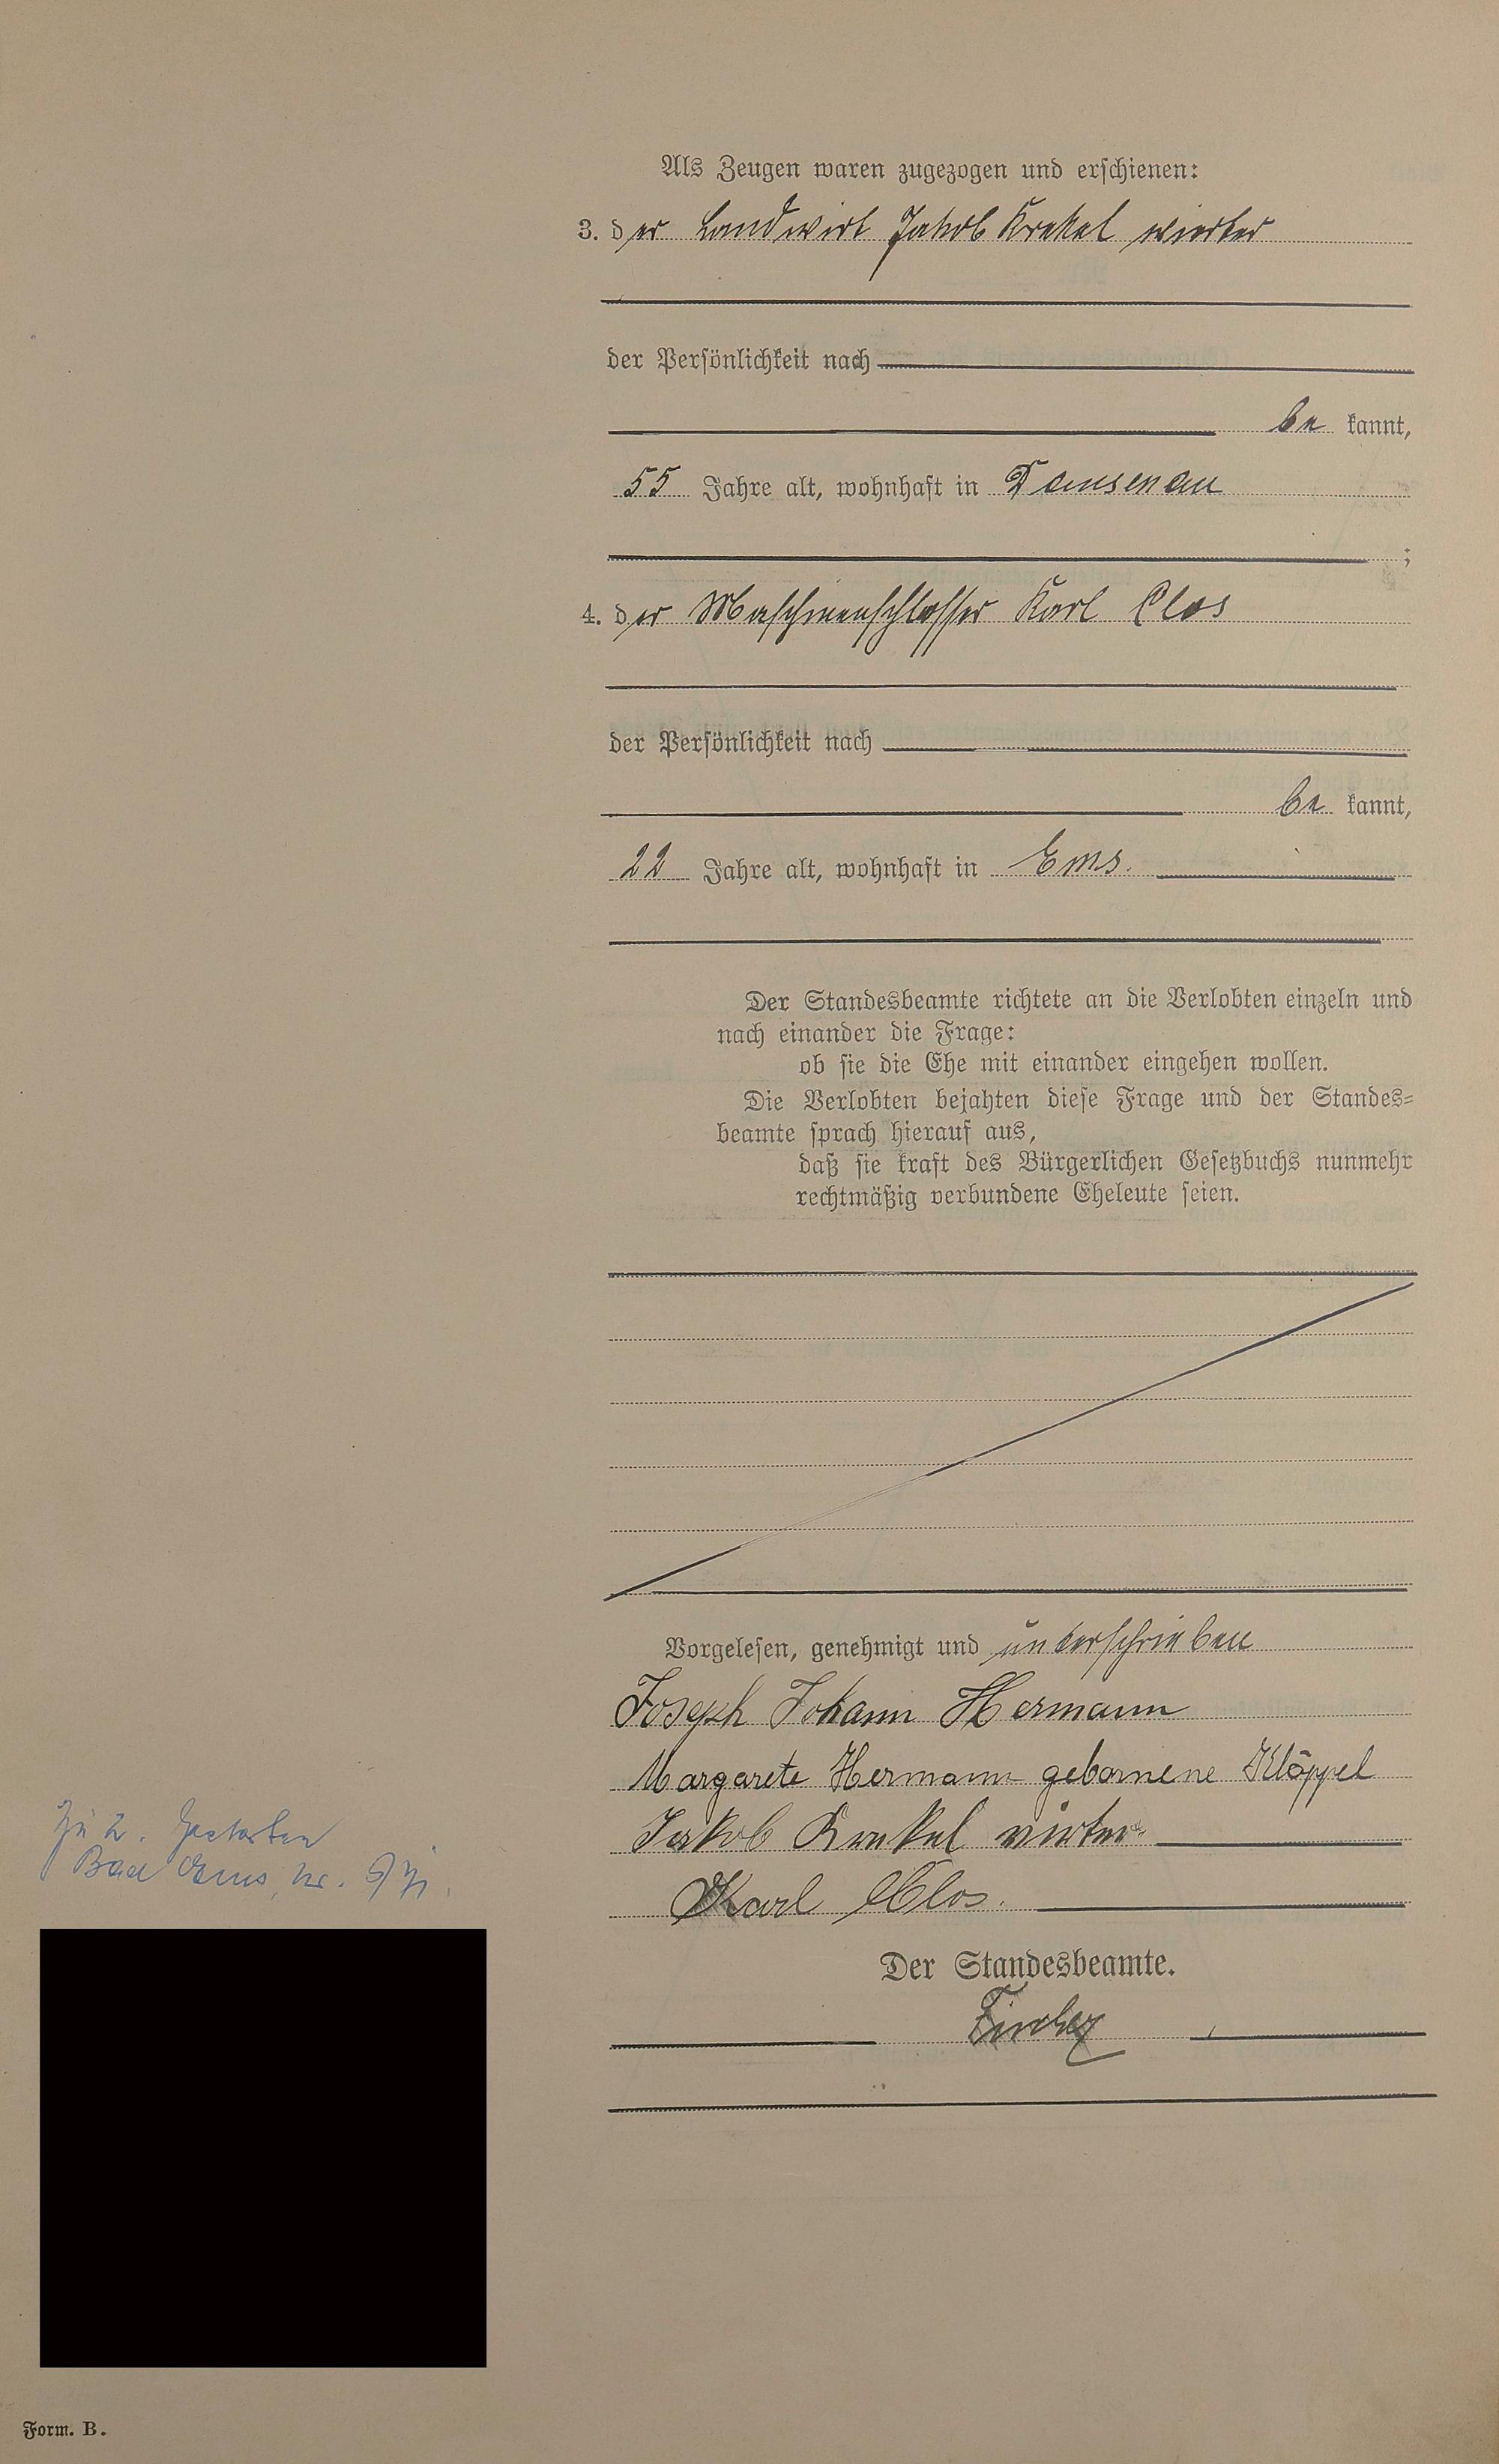 Als Zeugen waren zugezogen und erschienen:
3. der Landwirt Jakob Krekel vierter
der Persönlichkeit nach
be kannt,
55 Jahre alt, wohnhaft in Dausenau
;
4. der Maschinenschlosser Karl Clos
der Persönlichkeit nach
be kannt,
22 Jahre alt, wohnhaft in Ems.
Der Standesbeamte richtete an die Verlobten einzeln und
nach einander die Frage:
ob sie die Ehe mit einander eingehen wollen.
Die Verlobten bejahten diese Frage und der Standes=
beamte sprach hierauf aus,
daß sie kraft des Bürgerlichen Gesetzbuchs nunmehr
rechtmäßig verbundene Eheleute seien.
Vorgelesen, genehmigt und unterschrieben
Joseph Johann Hermann
Margarete Hermann gebornene Klöppel
Jakob Krekel vierter
Karl Clos.
Der Standesbeamte.
Zu 2. Gestorben
Bad Ems, Nr.
Form. B.